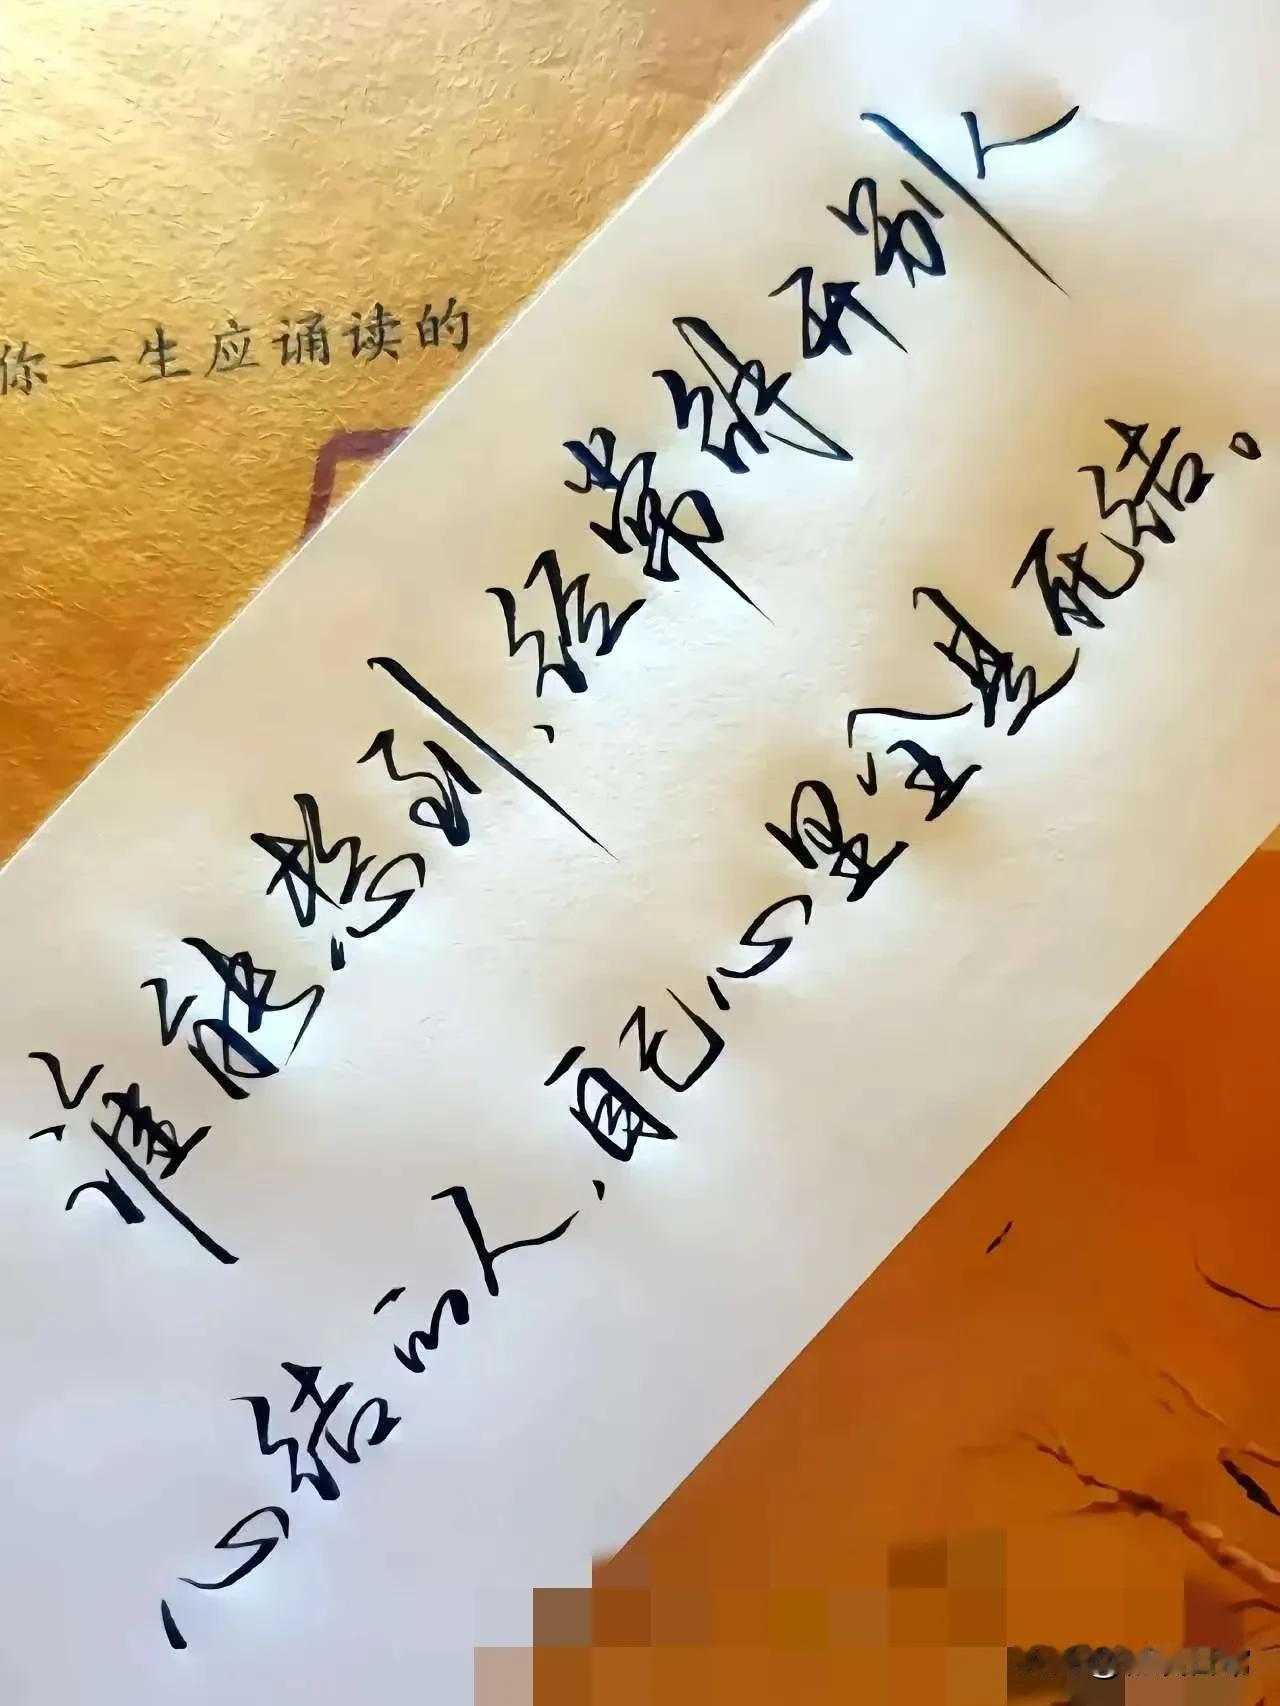 你一生应诵读的
谁能想到，经常解开别人
心结的人，自己心里全是死结。